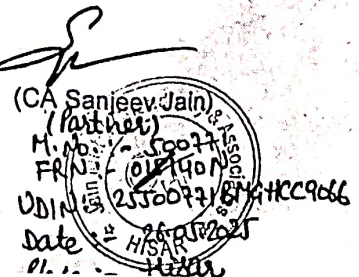 (CA Sanjeev Jain)
(Partner)
M. No. : 500771
FRN :
UDIN : 25500771BMGHCC9066
Date : 26.05.2025
Place :- Hisar
Jain & Associates
HISAR